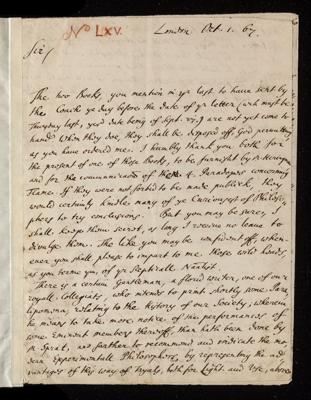 No LXV.
London Oct. 1. 67.
Sir,
The two Books, you mention in yr last to have sent by
the Coach ye day before the date of yr letter (wch must be
Thursday last, yrs date being of Sept. 27.) are not yet come to
hand. When they doe, they shall be disposed off, God permitting
as you have ordered me. I humbly thank you both for
the present of one of those Books, to be furnisht by
and for the communication of the 4. Paradoxes concerning
Flame. If they were not forbid to be made publick, they
would certainly kindle many of ye Curiousest of Philoso-
phers to try conclusions. But you may be sure, I
shall keep them secret, as long I receive no leave to
divulge them. The like you may be confident off, when-
ever you shall please to impart to me those wild hands,
as you terme ym, of yr Scepticall Naturist.
There is a certain Gentleman, a florid writer, one of our
royall Collegiats, who intends to print shortly some Para-
lipomena, relating to the History of our Society, wherein
he means to take more notice of the performances of
some Eminent members thereoff, than hath been done by
Mr Sprat, and farther to recommend and vindicate the mo-
dern Experimentall Philosophers, by representing the ad-
vantages of this way of tryals, both for Light and Use, above